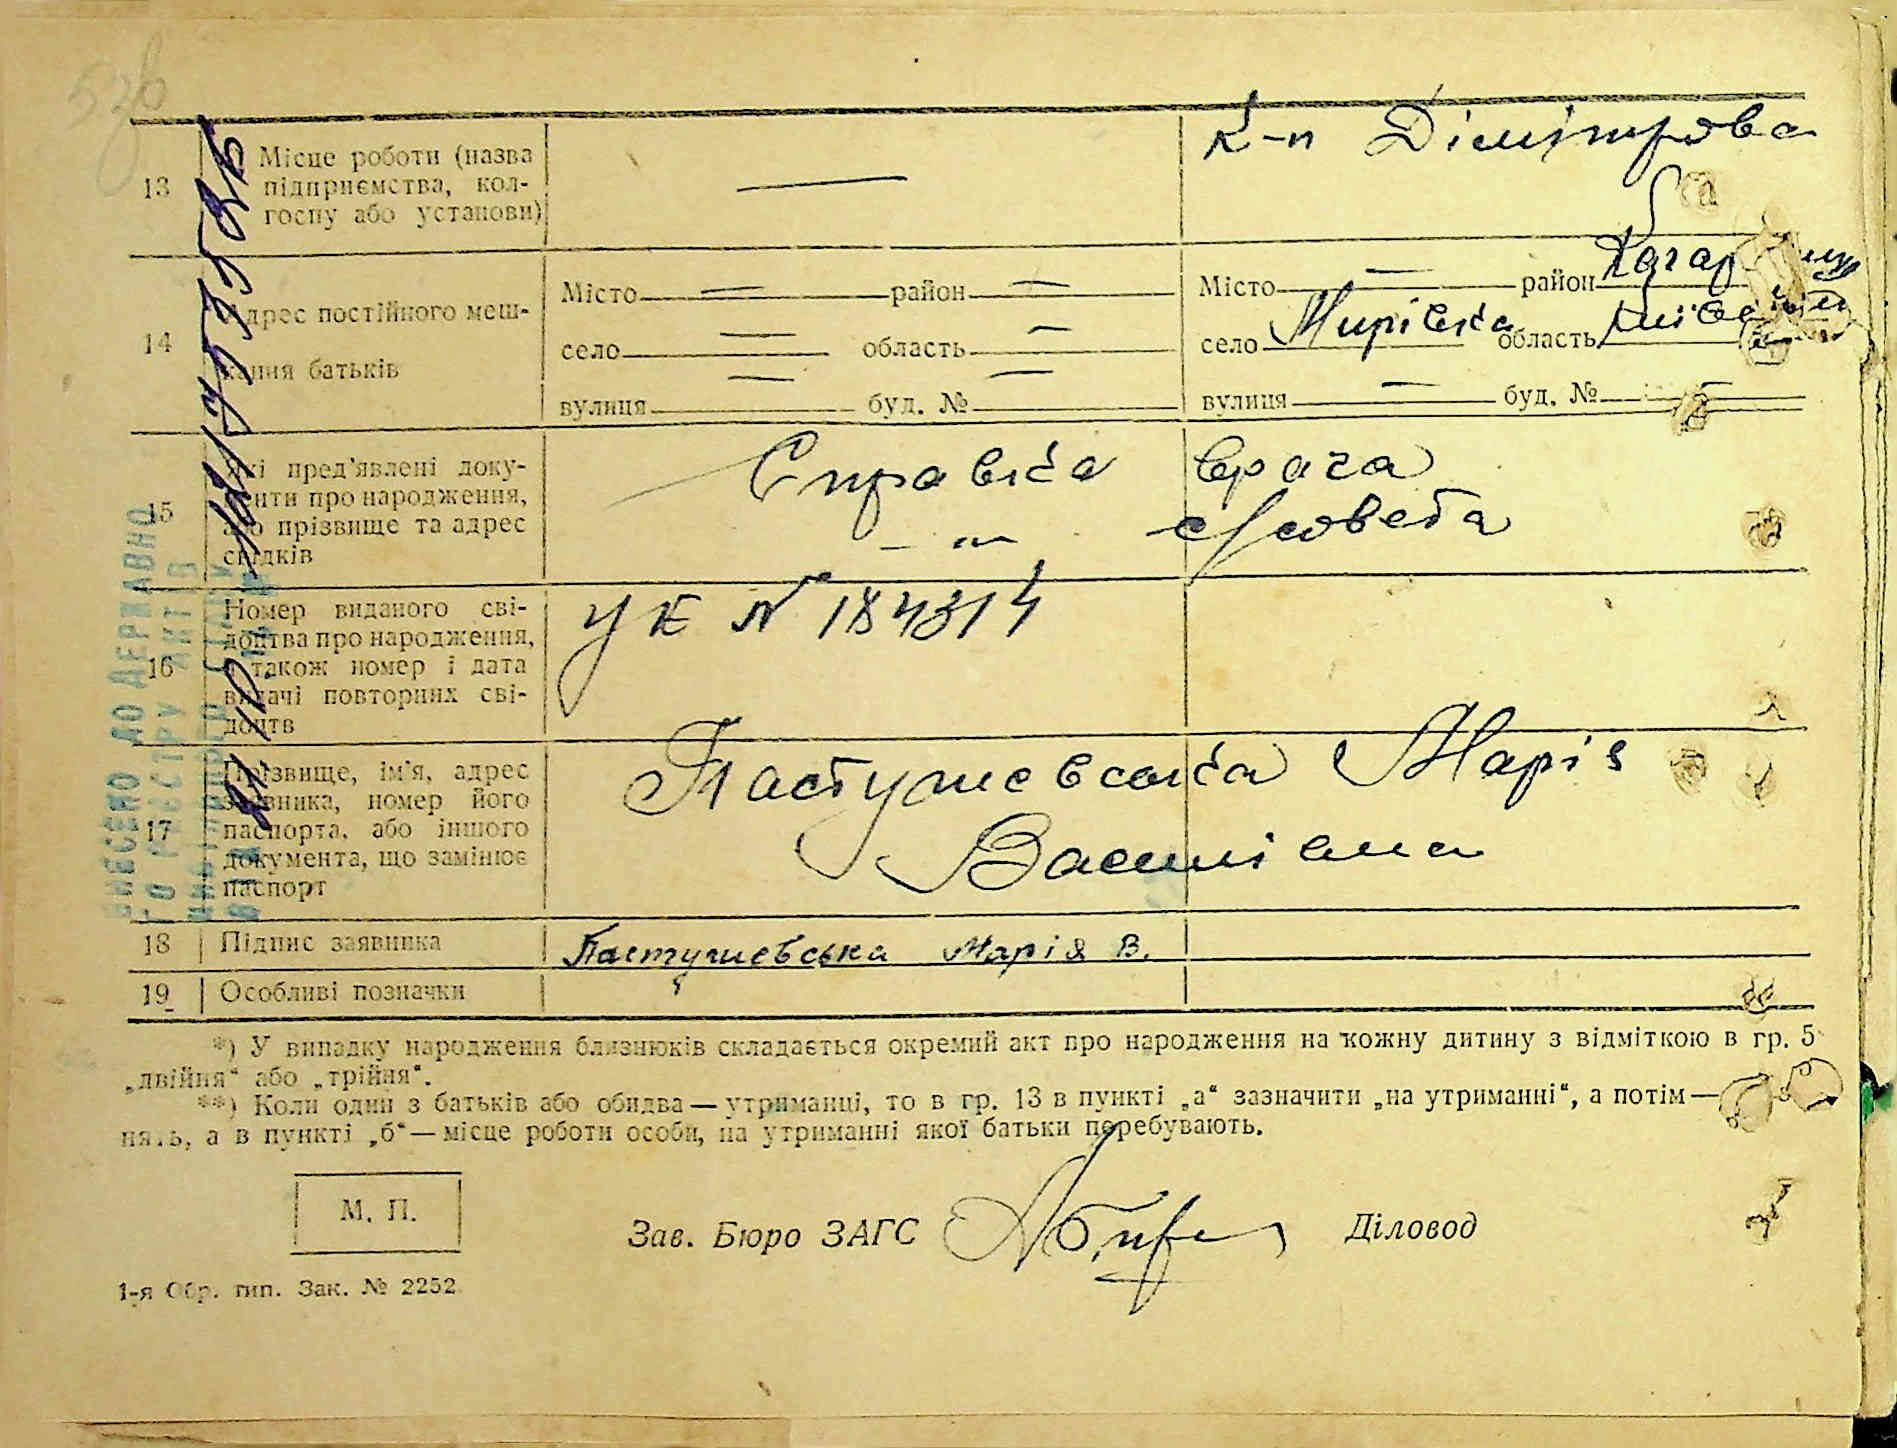 52б
13 Місце роботи (назва
підприємства, кол-
госпу або установи)
—
к-п Дімітрова
14 Адрес постійного меш-
кання батьків
Місто — район —
село — область —
вулиця — буд. № —
Місто — район
село Мирівка область
вулиця — буд. № —
15 Які пред'явлені доку-
менти про народження,
або прізвище та адрес
свідків
Справка врача
— „ — с/совета
16 Номер виданого сві-
доцтва про народження,
а також номер і дата
видачі повторних сві-
доцтв
УК № 184314
17 Прізвище, ім'я, адрес
заявника, номер його
паспорта, або іншого
документа, що замінює
паспорт
Пастушевська Марія
Василівна
18 Підпис заявника
Пастушевська Марія В.
19 Особливі позначки
ВНЕСЕНО ДО ДЕРЖАВНО
ГО РЕЄСТРУ АКТІВ
*) У випадку народження близнюків складається окремий акт про народження на кожну дитину з відміткою в гр. 5
„двійня“ або „трійня“.
**) Коли один з батьків або обидва — утриманці, то в гр. 13 в пункті „а“ зазначити „на утриманні“, а потім —
а в пункті „б“ — місце роботи особи, на утриманні якої батьки перебувають.
М. П.
Зав. Бюро ЗАГС
Діловод
1-я Обр. тип. Зак. № 2252.